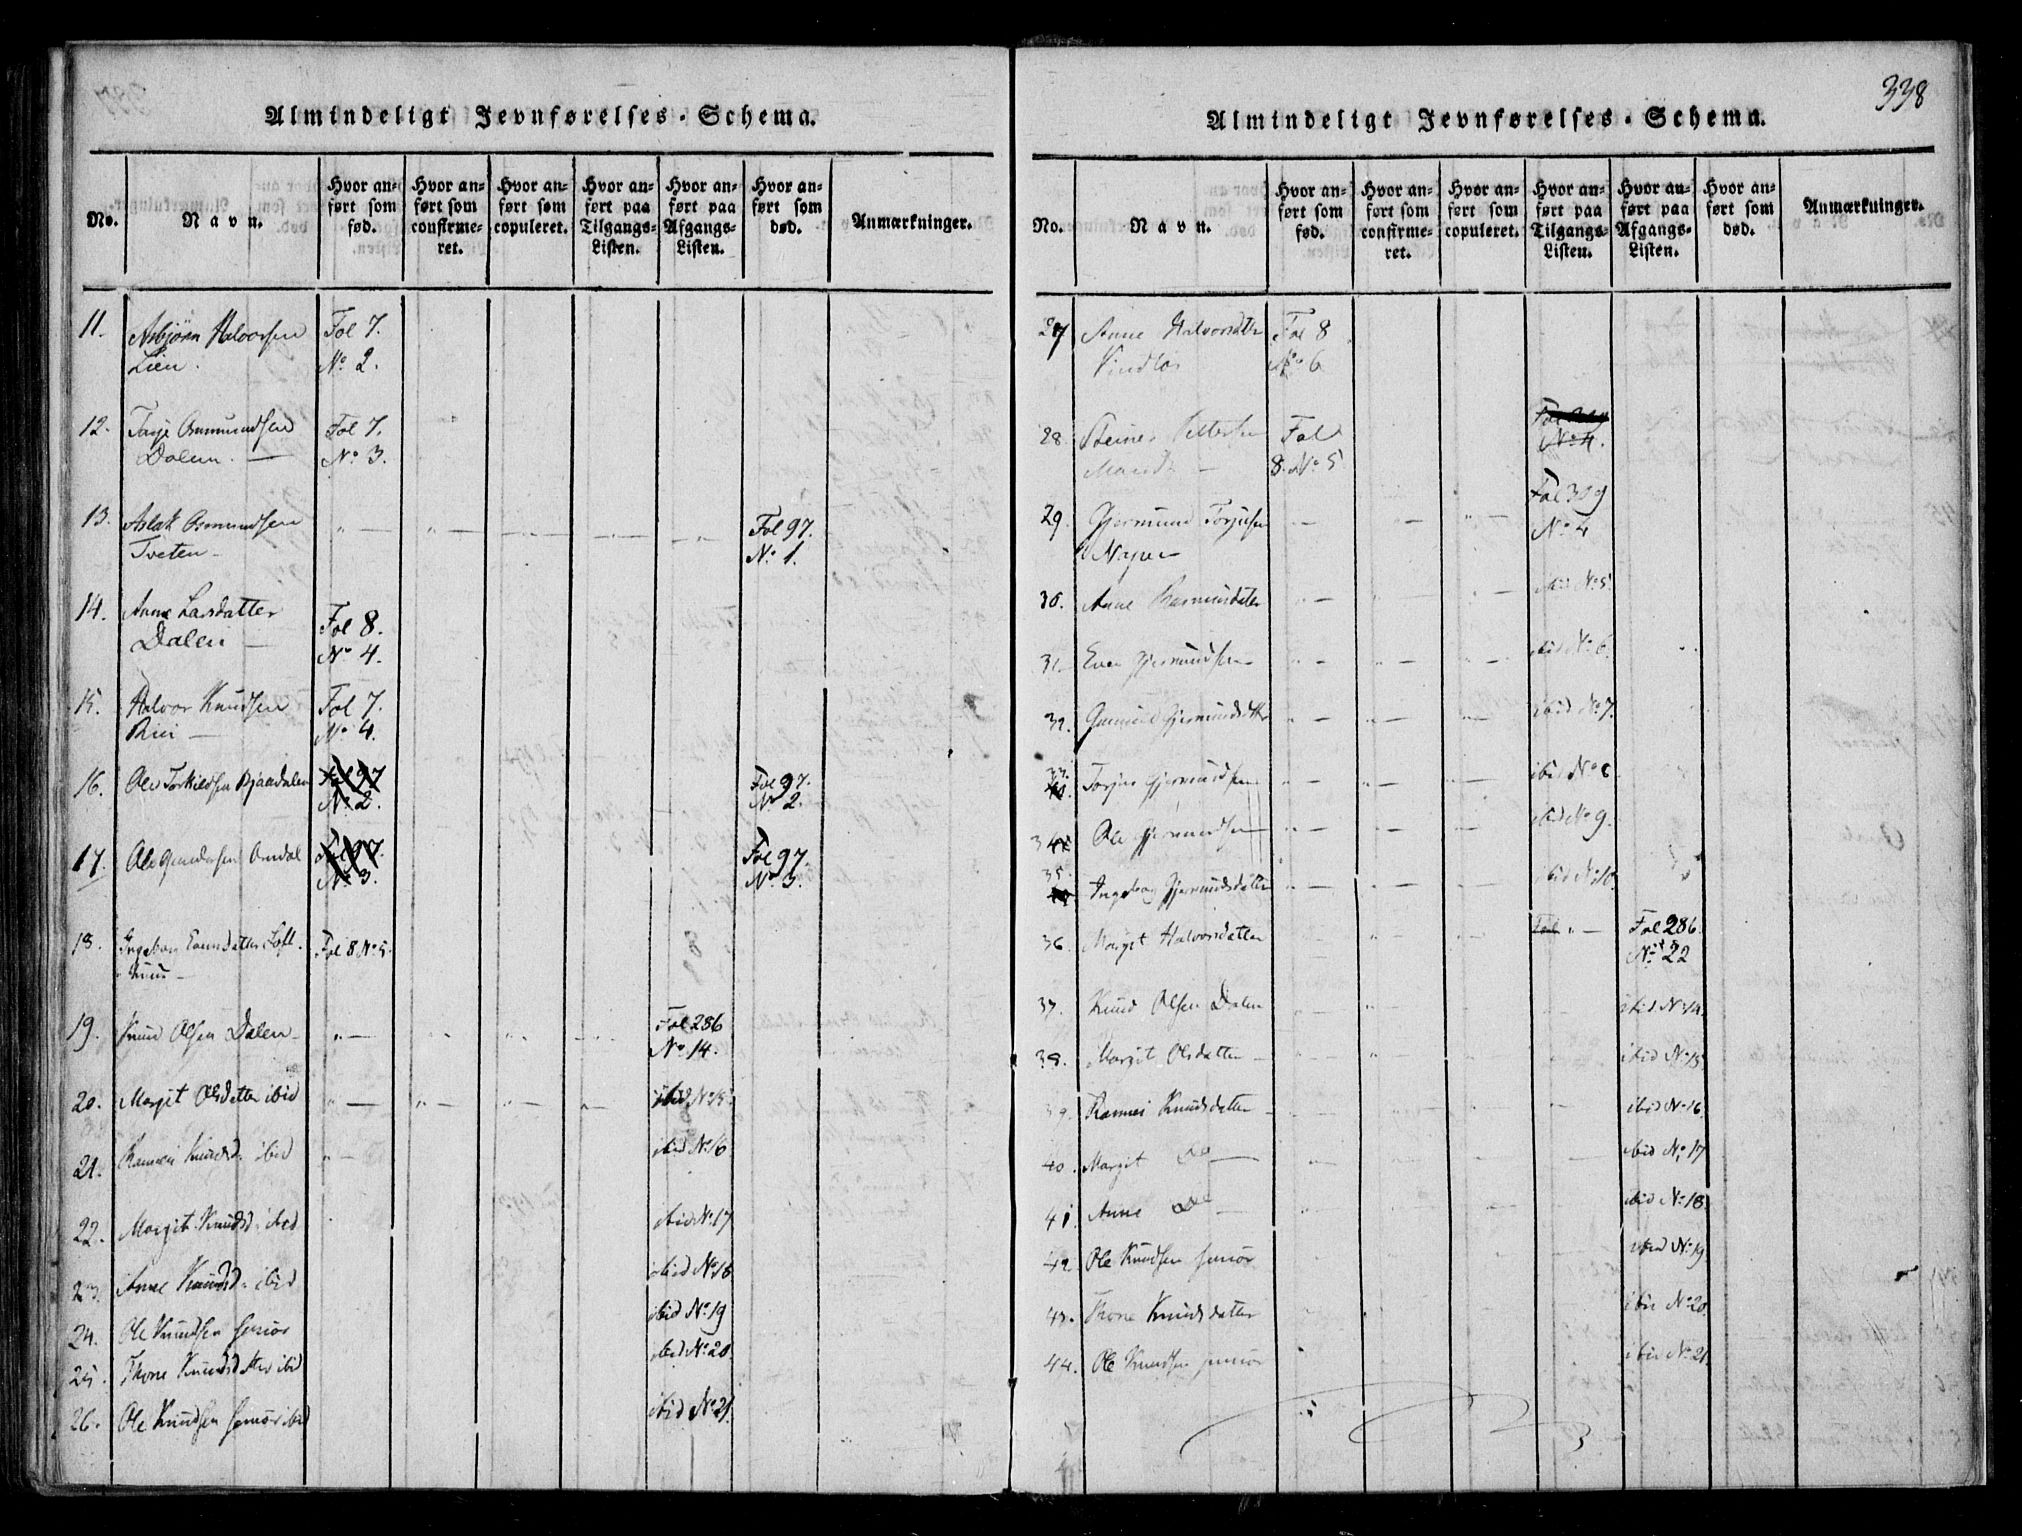 Almindeligt Jevnførelses-Schema.
No. Navn. Hvor anført som fød. Hvor anført som confirmeret. Hvor anført som copuleret. Hvor anført paa Tilgangs-Listen. Hvor anført paa Afgangs-Listen. Hvor anført som død. Anmærkninger.
11. Asbjørn Halvorsen Fol 7.
Lien. No 2.
12. Tarje Osmundsen Fol 7.
Dalen. — No 3.
13. Aslak Osmundsen " — " — Fol 97.
Tveten — No 1.
14. Anne Larsdatter Fol 8.
Dalen — No 4.
15. Halvor Knudsen Fol 7.
— No 4.
16. Ole Torkildsen Fol 97 Fol 97.
No 2. No 2.
17. Ole Fol 97. Fol 97.
No 3. No 3.
18. Ingebor Fol 8 No 5.
19. Knud Olsen Dalen — " — Fol 286
No 14.
20. Margit Olsdatter ibid " — " — ibid No 15
21. Knudsd. ibid " — ibid No 16
22. Margit Knudsd. ibid ibid No 17
23. Anne Knudsd. ibid ibid No 18
24. Ole Knudsen senior ibid No 19
25. Thone Knudsd ibid ibid No 20
26. Ole Knudsen ibid ibid No 21.
338
Almindeligt Jevnførelses-Schema.
No. Navn. Hvor anført som fød. Hvor anført som confirmeret. Hvor anført som copuleret. Hvor anført paa Tilgangs-Listen. Hvor anført paa Afgangs-Listen. Hvor anført som død. Anmærkninger.
27 Anne Halvorsdatter Fol 8
Vindlos No 6
28. Fol
8. No 5 No 4.
Fol 309
29. Gjermund Torjusen No 4
30. Anne ibid No 5
31. Even Gjermundsen ibid No 6.
32. Gjermundsdatter ibid No 7.
33. Torjus Gjermundsen ibid No 8
34 Ole Gjermundsen ibid No 9.
35. Ingeborg Gjermundsdatter ibid No 10.
36. Margit Halvorsdatter Fol " — Fol 286
No 22
37. Knud Olsen Dalen ibid No 14.
38. Margit Olsdatter ibid No 15
39. Knudsdatter ibid No 16
40. Margit Do — ibid No 17
41. Anne Do — ibid No 18
42. Ole Knudsen senior ibid No 19
43. Thone Knudsdatter ibid No 20
44. Ole Knudsen junior ibid No 21.